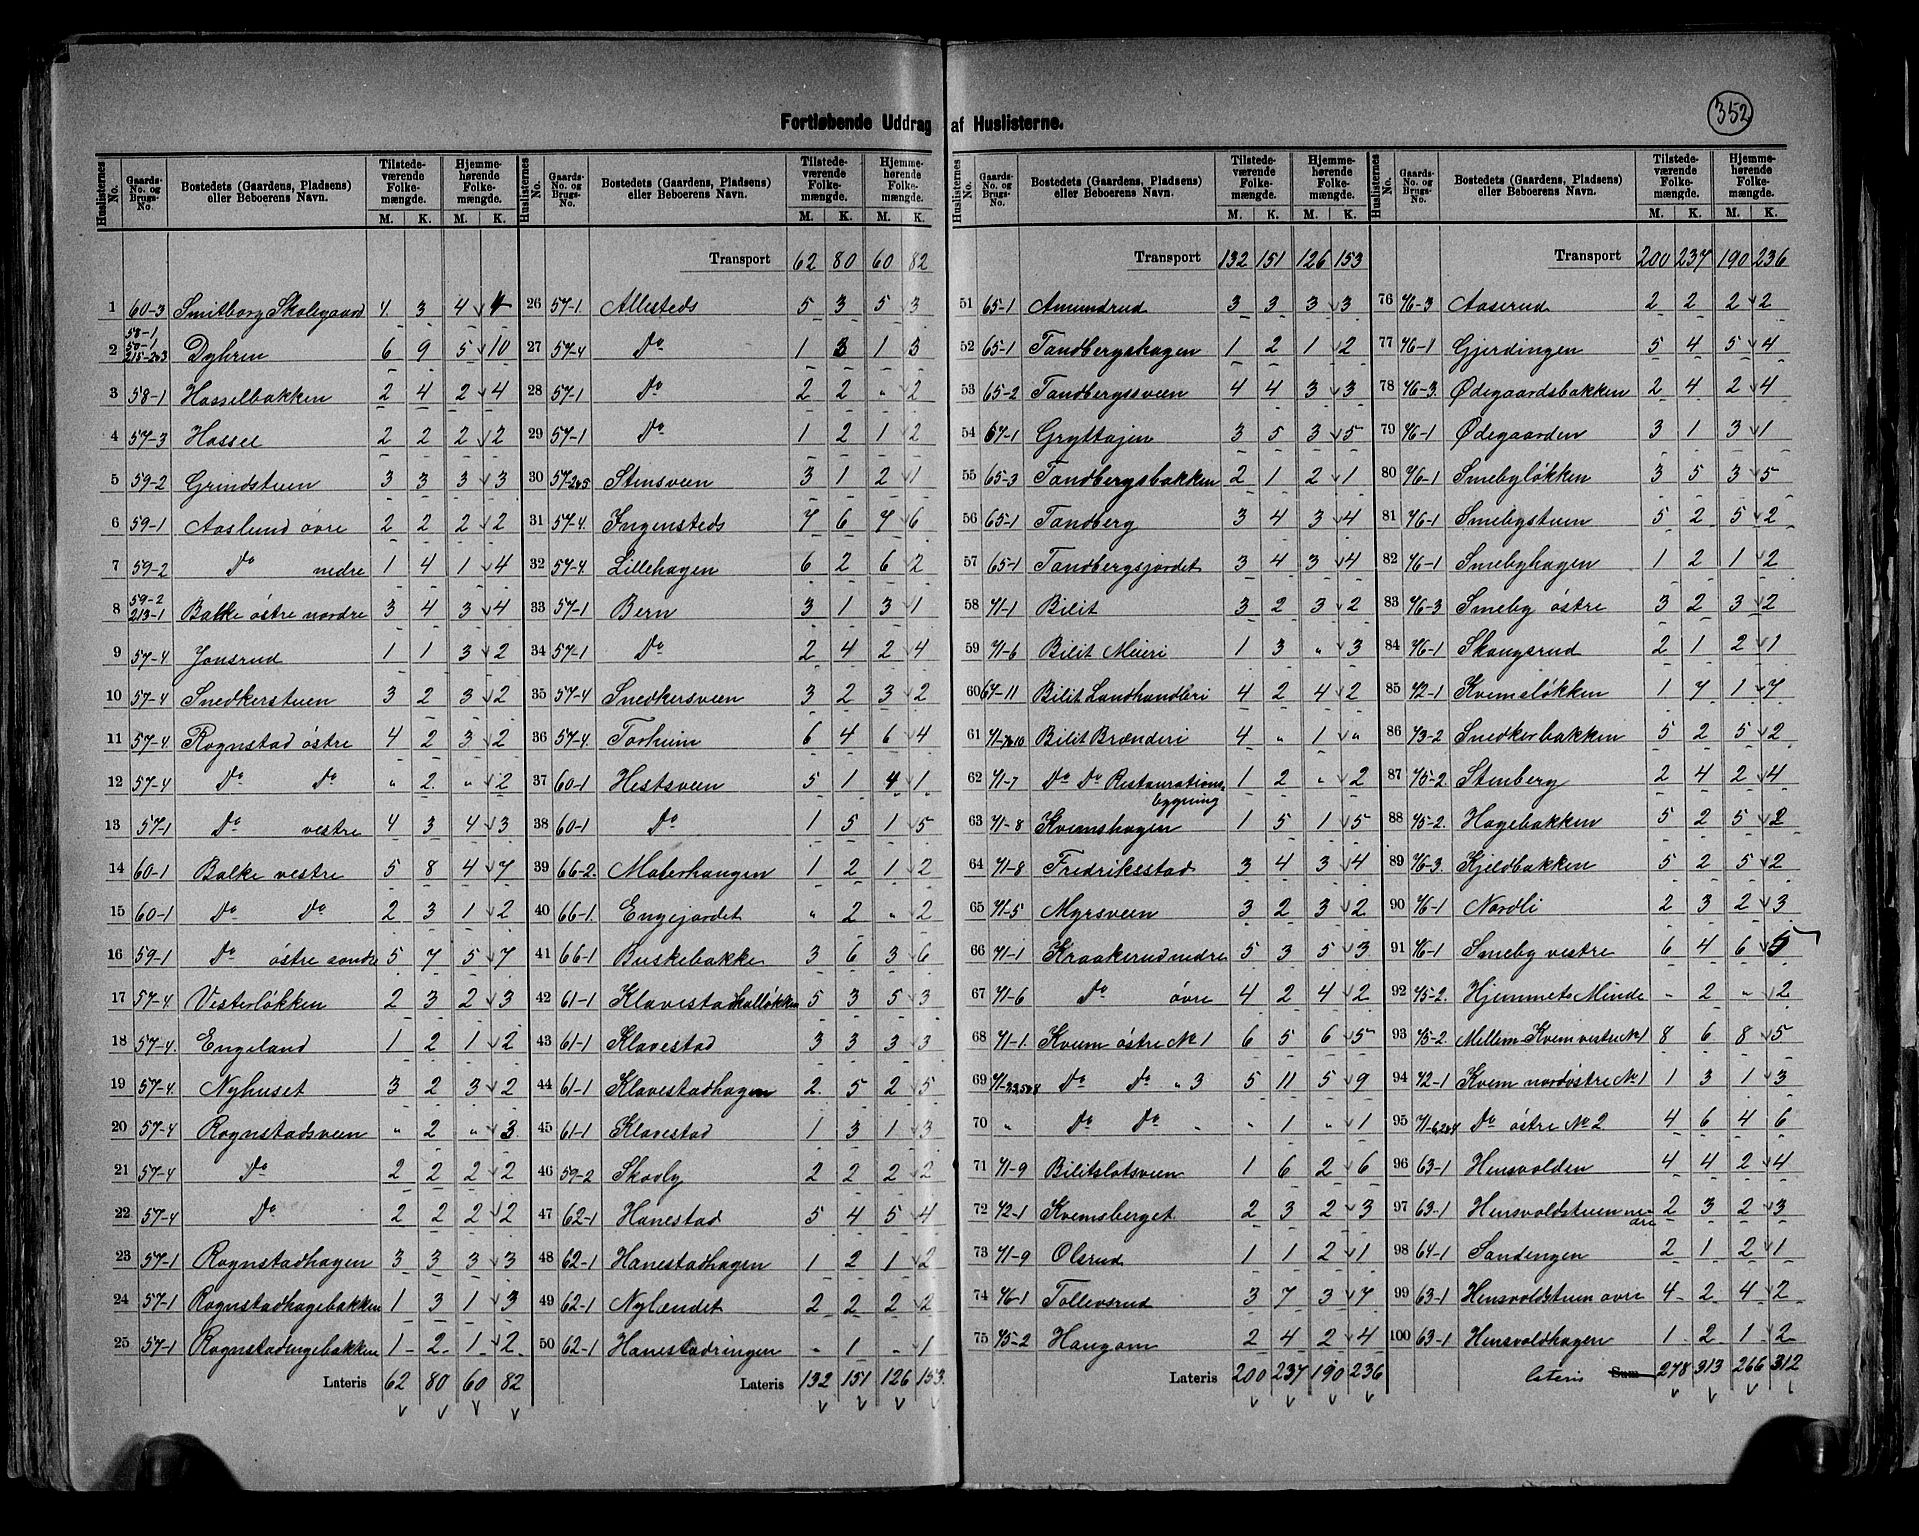 352
Fortløbende Uddrag af Huslisterne.
Huslisternes No. | Gaards-No. og Brugs-No. | Bostedets (Gaardens, Pladsens) eller Beboerens Navn. | Tilstedeværende Folkemængde. M. K. | Hjemmehørende Folkemængde. M. K.
1 60-3 Smitborg Skolegaard 4 3 4 4
2 58-1, 50-1 215-2o3 Dyhren 6 9 5 10
3 58-1 Hasselbakken 2 4 2 4
4 57-3 Hassel 2 2 2 2
5 59-2 Grindstuen 3 3 3 3
6 59-1 Aaslund övre 2 2 2 2
7 59-2 Do nedre 1 4 1 4
8 59-2 213-1 Balke östre nordre 3 4 3 4
9 57-4 Jonsrud 1 1 3 2
10 57-4 Snedkerstuen 3 2 3 2
11 57-4 Rognstad östre 4 2 3 2
12 57-4 Do Do " 2 " 2
13 57-1 Do vestre 4 3 4 3
14 60-1 Balke vestre 5 8 4 7
15 60-1 Do Do 2 3 1 2
16 59-1 Do östre söndre 5 7 5 7
17 57-4 Vesterlökken 2 3 2 3
18 57-4 Engeland 1 2 1 2
19 57-4 Nyhuset 3 2 3 2
20 57-4 Rognstadsveen " 2 " 3
21 57-4 Do 2 2 2 2
22 57-4 Do 2 2 2 2
23 57-1 Rognstadhagen 3 3 3 3
24 57-1 Rognstadhagebakken 1 3 1 3
25 57-1 Rognstadengebakken 1 2 1 2
Lateris 62 80 60 82
Transport 62 80 60 82
26 57-1 Allesteds 5 3 5 3
27 57-4 Do 1 3 1 3
28 57-1 Do 2 2 " 2
29 57-1 Do 1 2 1 2
30 57-2o5 Stensveen 3 1 2 1
31 57-4 Ingensteds 7 6 7 6
32 57-4 Lillehagen 6 2 6 2
33 57-1 Bern 3 1 3 1
34 57-1 Do 2 4 2 4
35 57-4 Snedkersveen 3 2 3 2
36 57-4 Torheim 6 4 6 4
37 60-1 Hestsveen 5 1 4 1
38 60-1 Do 1 5 1 5
39 66-2 Malerhaugen 1 2 1 2
40 66-1 Engejordet " 2 " 2
41 66-1 Buskebakke 3 6 3 6
42 61-1 Klavestadkallökken 5 3 5 3
43 61-1 Klavestad 3 3 3 3
44 61-1 Klavestadhagen 2 5 2 5
45 61-1 Klavestad 1 3 1 3
46 59-2 Skavly 2 2 2 2
47 62-1 Hanestad 5 4 5 4
48 62-1 Hanestadhagen 1 2 1 2
49 62-1 Nylændet 2 2 2 2
50 62-1 Hanestadringen " 1 " 1
Lateris 132 151 126 153
Transport 132 151 126 153
51 65-1 Amundrud 3 3 3 3
52 65-1 Tandbergshagen 1 2 1 2
53 65-2 Tandbergssveen 4 4 3 3
54 67-1 Gryttajen 3 5 3 5
55 65-3 Tandbergsbakken 2 1 2 1
56 65-1 Tandberg 3 4 3 4
57 65-1 Tandbergsjordet 3 4 3 4
58 71-1 Bilit 3 2 3 2
59 71-6 Bilit Meieri 1 3 " 3
60 67-11 Bilit Landhandleri 4 2 4 2
61 71-7o10 Bilit Brænderi 4 " 1 "
62 71-7 Do Do Restaurations- bygning 1 2 " 2
63 71-8 Kvemshagen 1 5 1 5
64 71-8 Fredriksstad 3 4 3 4
65 71-5 Myrsveen 3 2 3 2
66 71-1 Kraakerud nedre 5 3 5 3
67 71-6 Do övre 4 2 4 2
68 71-1 Kvem östre No 1 6 5 6 5
69 71-3,5o8 Do Do " 3 5 11 5 9
70 " Do Do " " 1 " 1
71 71-9 Bilitslotsveen 1 6 2 6
72 72-1 Kvemsberget 2 3 2 3
73 71-9 Olsrud 1 1 2 1
74 76-1 Tollevsrud 3 7 3 7
75 75-2 Haugom 2 4 2 4
Lateris 200 237 190 236
Transport 200 237 190 236
76 76-3 Aaserud 2 2 2 2
77 76-1 Gjerdingen 5 4 5 4
78 76-3 Ødegaardsbakken 2 4 2 4
79 76-1 Ødegaarden 3 1 3 1
80 76-1 Smebylökken 3 5 3 5
81 76-1 Smebystuen 5 2 5 2
82 76-1 Smebyhagen 1 2 1 2
83 76-3 Smeby östre 3 2 3 2
84 76-1 Skougsrud 2 1 2 1
85 72-1 Kvemslökken 1 7 1 7
86 73-2 Snedkerbakken 5 2 5 2
87 75-2 Stenberg 2 4 2 4
88 75-2 Hagebakken 5 2 5 2
89 76-3 Kjeldbakken 5 2 5 2
90 76-1 Nordli 2 3 2 3
91 76-1 Smeby vestre 6 4 6 5
92 75-2 Hjemmets Minde " 2 " 2
93 75-2 Mellem-Kvem vestre No 1 8 6 8 5
94 72-1 Kvem nordöstre No 1 1 3 1 3
95 71-6,2o4 Do östre No 2 4 6 4 6
96 63-1 Hensvolden 4 4 2 4
97 63-1 Hensvoldstuen nedre 2 3 2 3
98 64-1 Sandengen 2 1 2 1
99 63-1 Hensvoldstuen övre 4 2 4 2
100 63-1 Hensvoldhagen 1 2 1 2
Lateris Sum 278 313 266 312